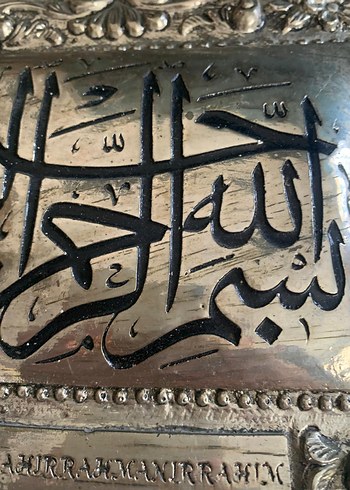 بسم الله الرحمن الرحيم
AHIRRAHMANIRRAHIM